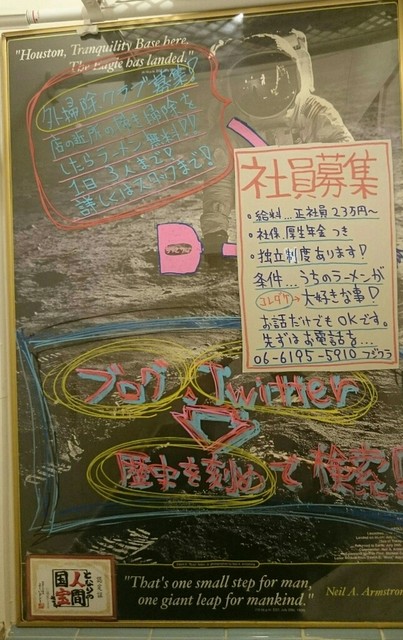 "Houston, Tranquility Base here.
The Eagle has landed."
外掃除クラブ募集!
店の近所の掃き掃除を
したらラーメン無料!!
1日3人まで!
詳しくはスタッフまで!
社員募集
・給料…正社員23万円〜
・社保、厚生年金つき
・独立制度あります!
条件…うちのラーメンが
コレダケ→大好きな事!
お話だけでもOKです。
先ずはお電話を…
06-6195-5910 フジウラ
ブログ Twitter
歴史を刻めで検索!
"That's one small step for man,
one giant leap for mankind."
Neil A. Armstron
人間
国宝